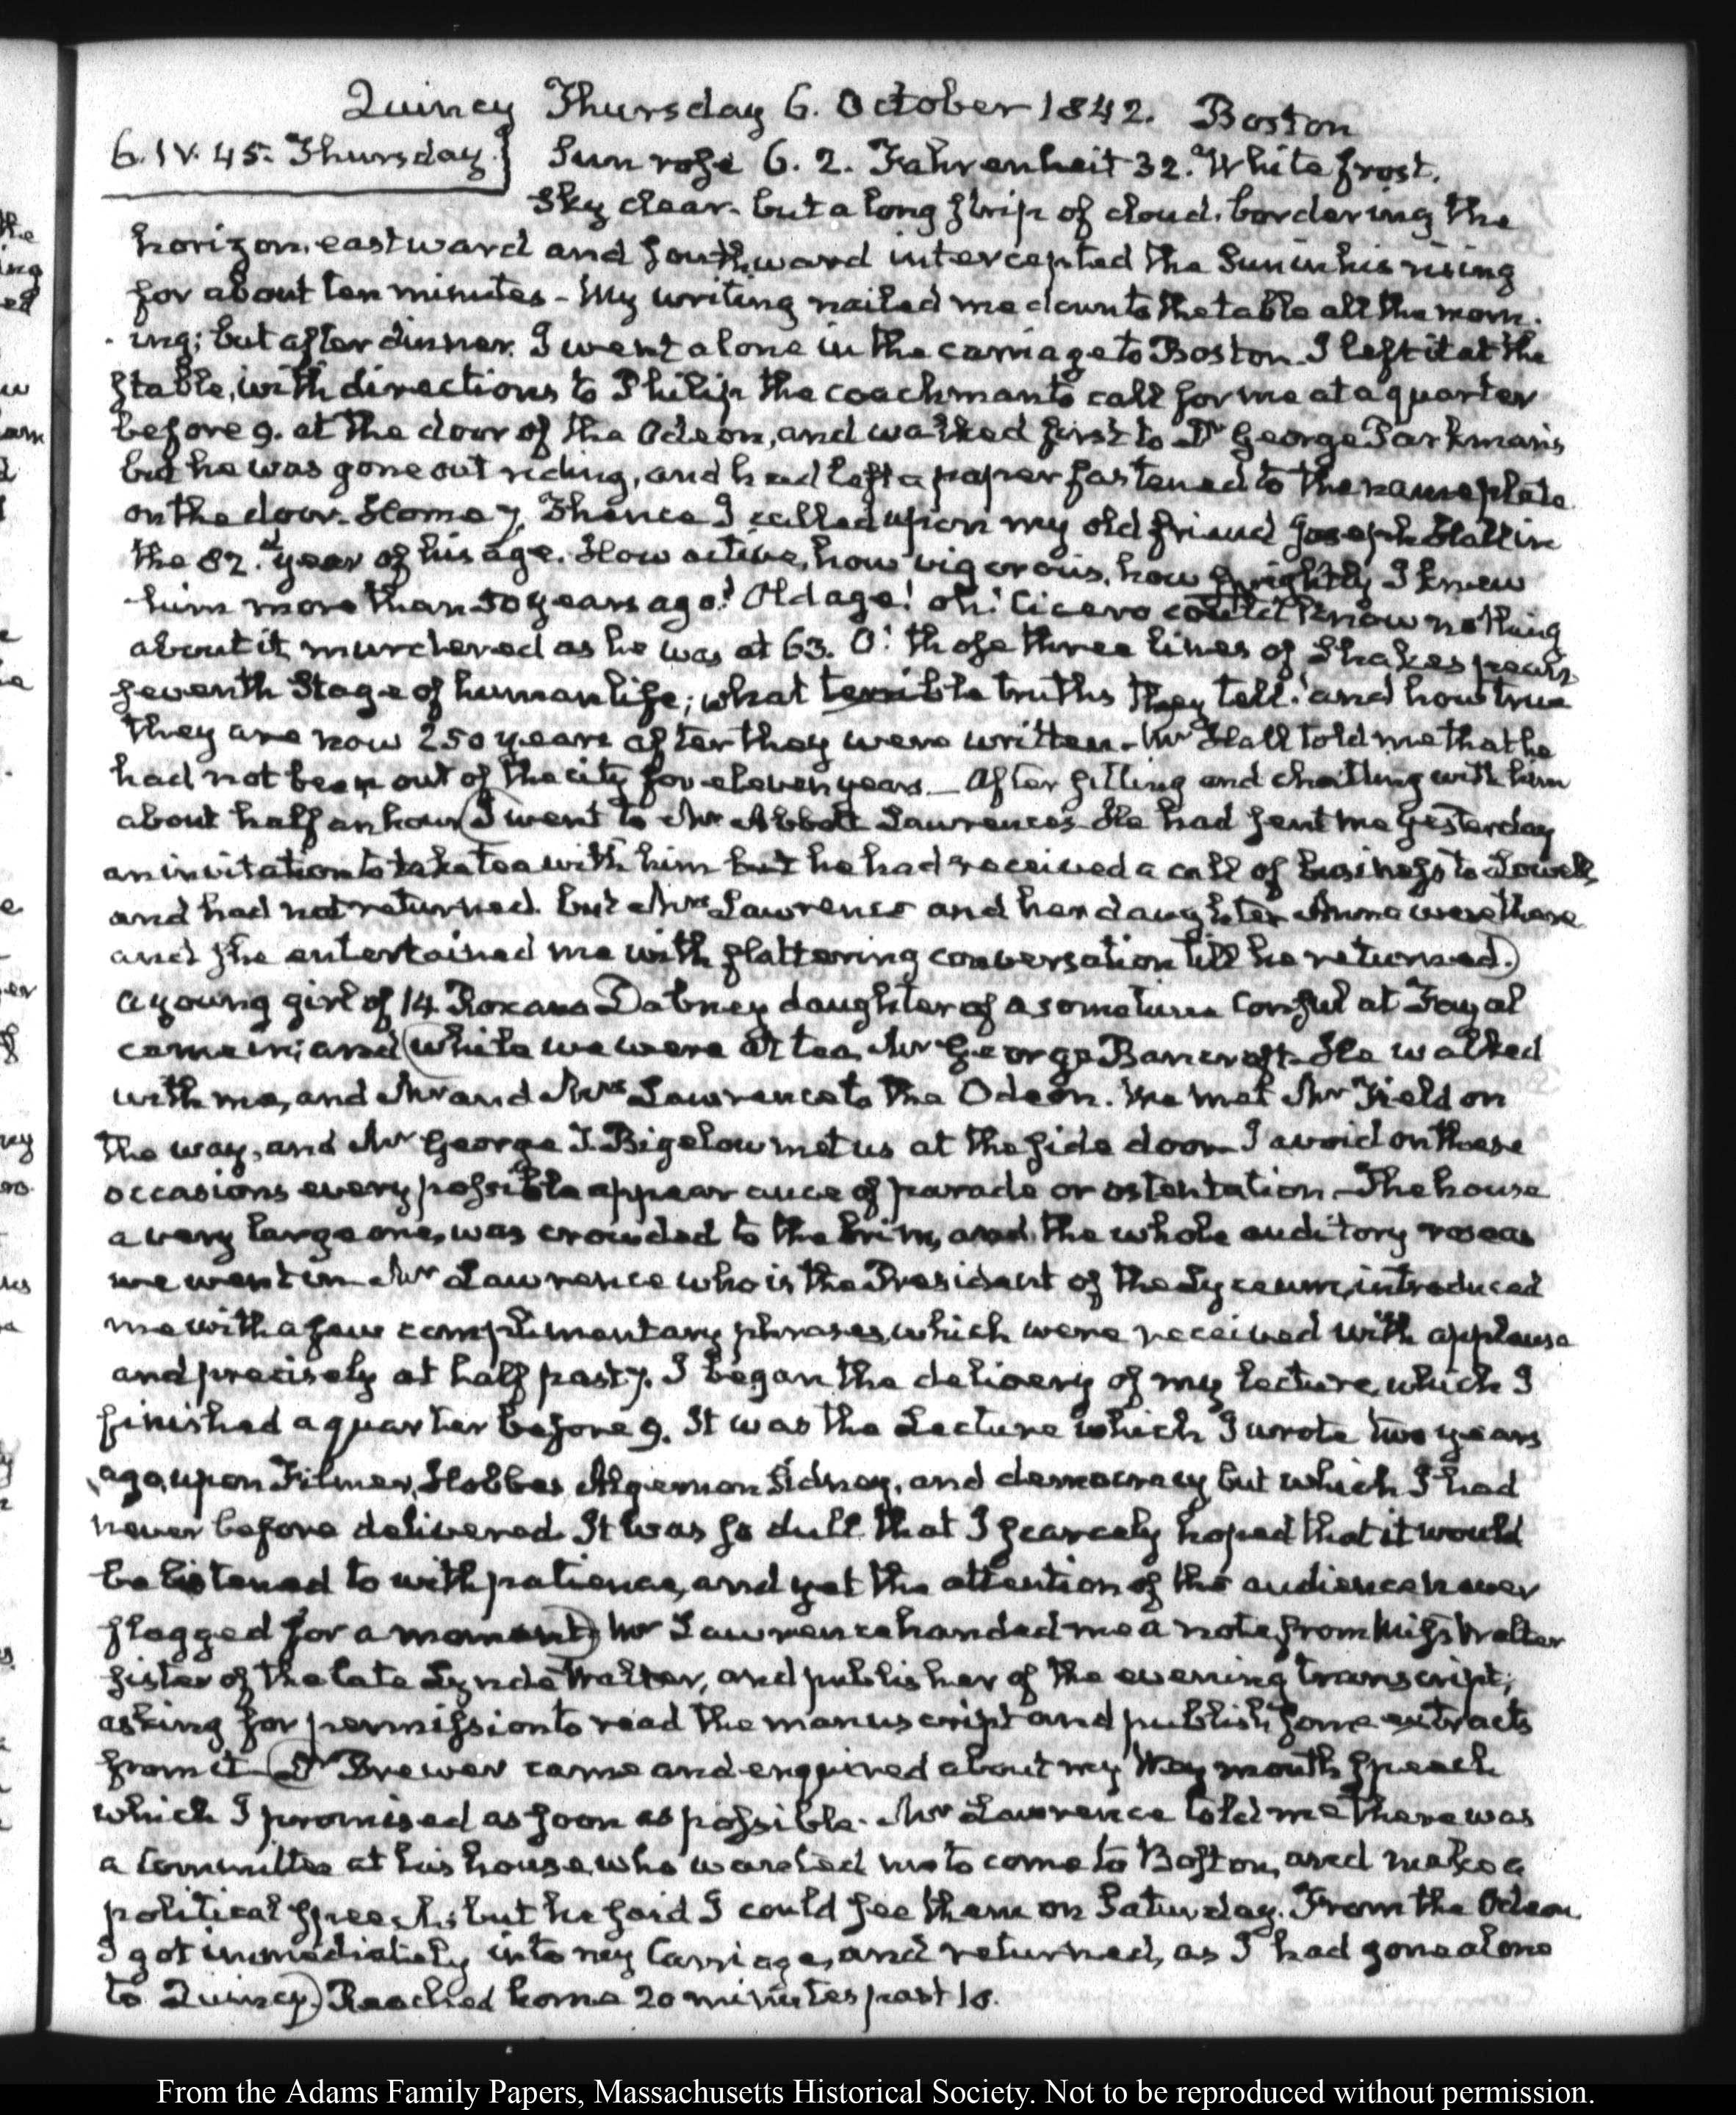 Quincy Thursday 6. October 1842. Boston
6. IV. 45. Thursday.} Sun rose 6. 2. Fahrenheit 32. White frost.
Sky clear. but a long strip of cloud. bordering the
horizon. eastward and southward intercepted the Sun in his rising
for about ten minutes - My writing nailed me down to the table all the morn-
-ing; but after dinner. I went alone in the carriage to Boston. I left it at the
stable, with directions to Philip the coachman to call for me at a quarter
before 9. at the door of the Odeon, and walked first to Dr. George Parkman's
but he was gone out riding, and had left a paper fastened to the name plate
on the door. Home 7. Thence I called upon my old friend Joseph Hall in
the 82.d year of his age. How active, how vigorous, how sprightly I knew
him more than 50 years ago! Old age! oh! Cicero could know nothing
about it, murdered as he was at 63. O! those three lines of Shakespear's
seventh Stage of human life; what terrible truths they tell! and how true
they are now 250 years after they were written. Mr Hall told me that he
had not been out of the city for eleven years. After sitting and chatting with him
about half an hour (I went to Mr Abbott Lawrence's. He had sent me yesterday
an invitation to take tea with him but he had received a call of business to Lowell,
and had not returned. but Mrs Lawrence and her daughter Anna were there
and she entertained me with flattering conversation till he returned.)
A young girl of 14 Roxana Dabney daughter of a sometime Consul at Fayal
came in; and (while we were at tea, Mr George Bancroft. He walked
with me, and Mr and Mrs Lawrence to the Odeon. We met Mr Field on
the way, and Mr George T. Bigelow met us at the side door. I avoid on these
occasions every possible appearance of parade or ostentation. The house
a very large one, was crowded to the brim, and the whole auditory rose as
we went in. Mr Lawrence who is the President of the Lyceum, introduced
me with a few complimentary phrases, which were received with applause
and precisely at half past 7. I began the delivery of my lecture, which I
finished a quarter before 9. It was the Lecture which I wrote two years
ago, upon Filmer, Hobbes, Algernon Sidney, and democracy but which I had
never before delivered. It was so dull that I scarcely hoped that it would
be listened to with patience, and yet the attention of the audience never
flagged for a moment) Mr Lawrence handed me a note from Miss Walter
sister of the late Lynde Walter, and publisher of the evening transcript;
asking for permission to read the manuscript and publish some extracts
from it. (Dr Brewer came and enquired about my Weymouth speech
which I promised as soon as possible. Mr Lawrence told me there was
a Committee at his house, who wanted me to come to Boston, and make a
political speech; but he said I could see them on Saturday. From the Odeon
I got immediately into my Carriage, and returned, as I had gone alone
to Quincy.) Reached home 20 minutes past 10.
From the Adams Family Papers, Massachusetts Historical Society. Not to be reproduced without permission.